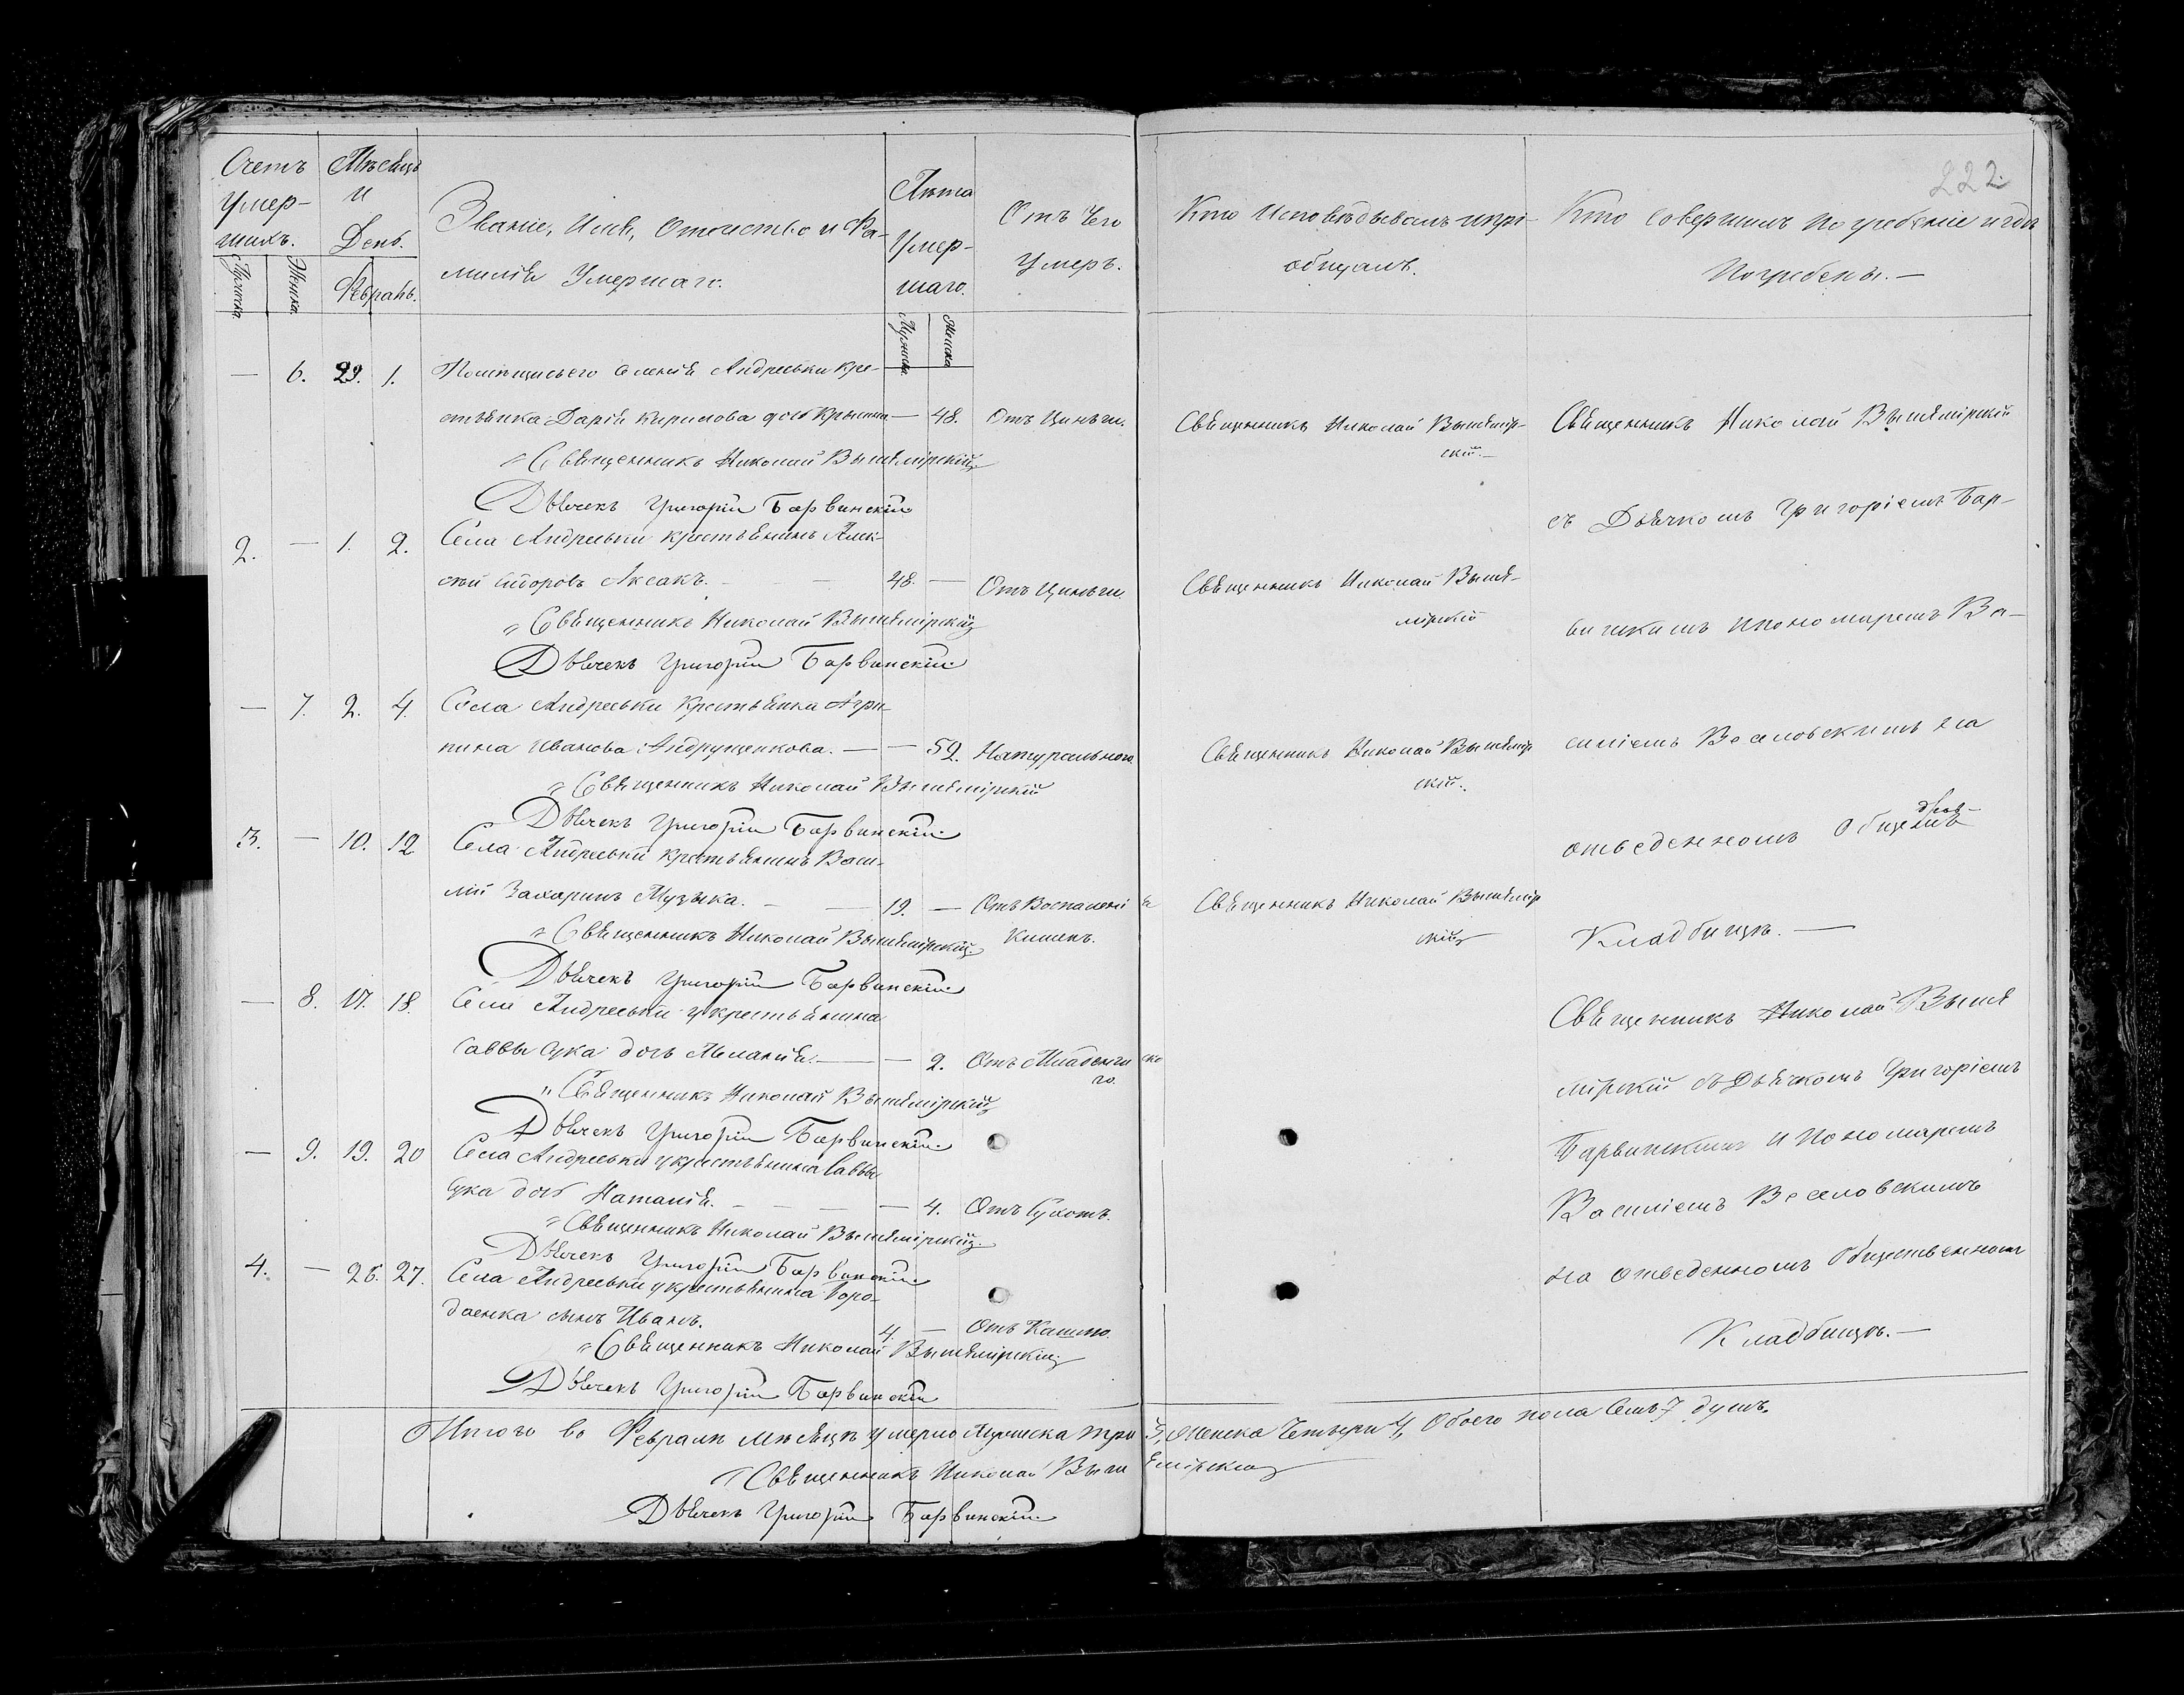 222.
Счетъ Умер-шихъ.
Мѣсяцъ и День.
Званіе, Имя, Отчество и Фа-
милія Умершаго.
Лѣта Умер-шаго.
Отъ Чего Умеръ.
Кто Исповѣдывалъ и прі-
общалъ.
Кто Совершилъ погребеніе и гдѣ
Погребены. —
Мужеска. Женска. Февраль. Мужеска. Женска.
— 6. 29. 1. Помѣщичьего селенія Андреевки кре-
стьянка Дарія Кирилова — 48. Отъ Цинъги. Священникъ Николай Вышемір-
скій. — Священникъ Николай Вышемірскій
„ Священникъ Николай Вышемірскій
Дьячекъ Григорій Барвинскій
съ Дьячкомъ Григоріемъ Бар-
2. — 1. 2. Села Андреевки крестьянинъ Алек-
сѣй Сидоровъ Аксакъ. — 48. — Отъ Цинъги. Священникъ Николай Выше-
мірскій
„ Священникъ Николай Вышемірскій
винскимъ и пономаремъ Ва-
Дьячекъ Григорій Барвинскій.
— 7. 2. 4. Села Андреевки Крестьянка Агри-
пина Иванова Андрущенкова. — — 52. Натуральною. Священникъ Николай Вышемір
скій.
силіемъ Веселовскимъ на
„ Священникъ Николай Вышемірскій
Дьячекъ Григорій Барвинскій.
отведенномъ
3. — 10. 12 Села Андреевки крестьянинъ Васи-
лій Захаринъ Музыка. — 19. — Отъ Воспаленія
Кишекъ. Священникъ Николай Вышемір
скій
„ Священникъ Николай Вышемірскій.
Кладбищѣ. —
Дьячекъ Григорій Барвинскій
— 8. 17. 18. Села Андреевки у крестьянина
Саввы дочь Меланія. — — 2. Отъ Младенческо
го.
Священникъ Николай Выше
„ Священникъ Николай Вышемірскій
мірскій съ Дьячкомъ Григоріемъ
Дьячекъ Григорій Барвинскій.
Барвинскимъ и Пономаремъ
— 9. 19. 20 Села Андреевки у крестьянина Саввы
дочь Наталія. — — 4. Отъ Сухотъ.
Василіемъ Веселовскимъ
„ Священникъ Николай Вышемірскій.
Дьячекъ Григорій Барвинскій.
на отведенномъ Общественномъ
4. — 26. 27. Села Андреевки у крестьянина Горо-
даенка сынъ Иванъ. 4. — Отъ Кашлю.
Кладбищѣ. —
„ Священникъ Николай Вышемірскій
Дьячекъ Григорій Барвинскій
Итого въ Февралѣ мѣсяцѣ умерло Мужеска три 3, Женска Четыри 4, Обоего пола Семь 7 душъ.
„ Священникъ Николай Вышемірскій
Дьячекъ Григорій Барвинскій.